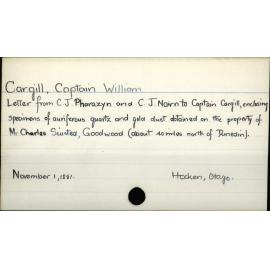 Cargill, Captain William
Letter from C.J. Pharazyn and C.J. Nairn to Captain Cargill, enclosing
specimens of auriferous quartz and gold dust obtained on the property of
Mr Charles Suisted, Goodwood (about 40 miles north of Dunedin).
November 1, 1851.
Hocken, Otago.